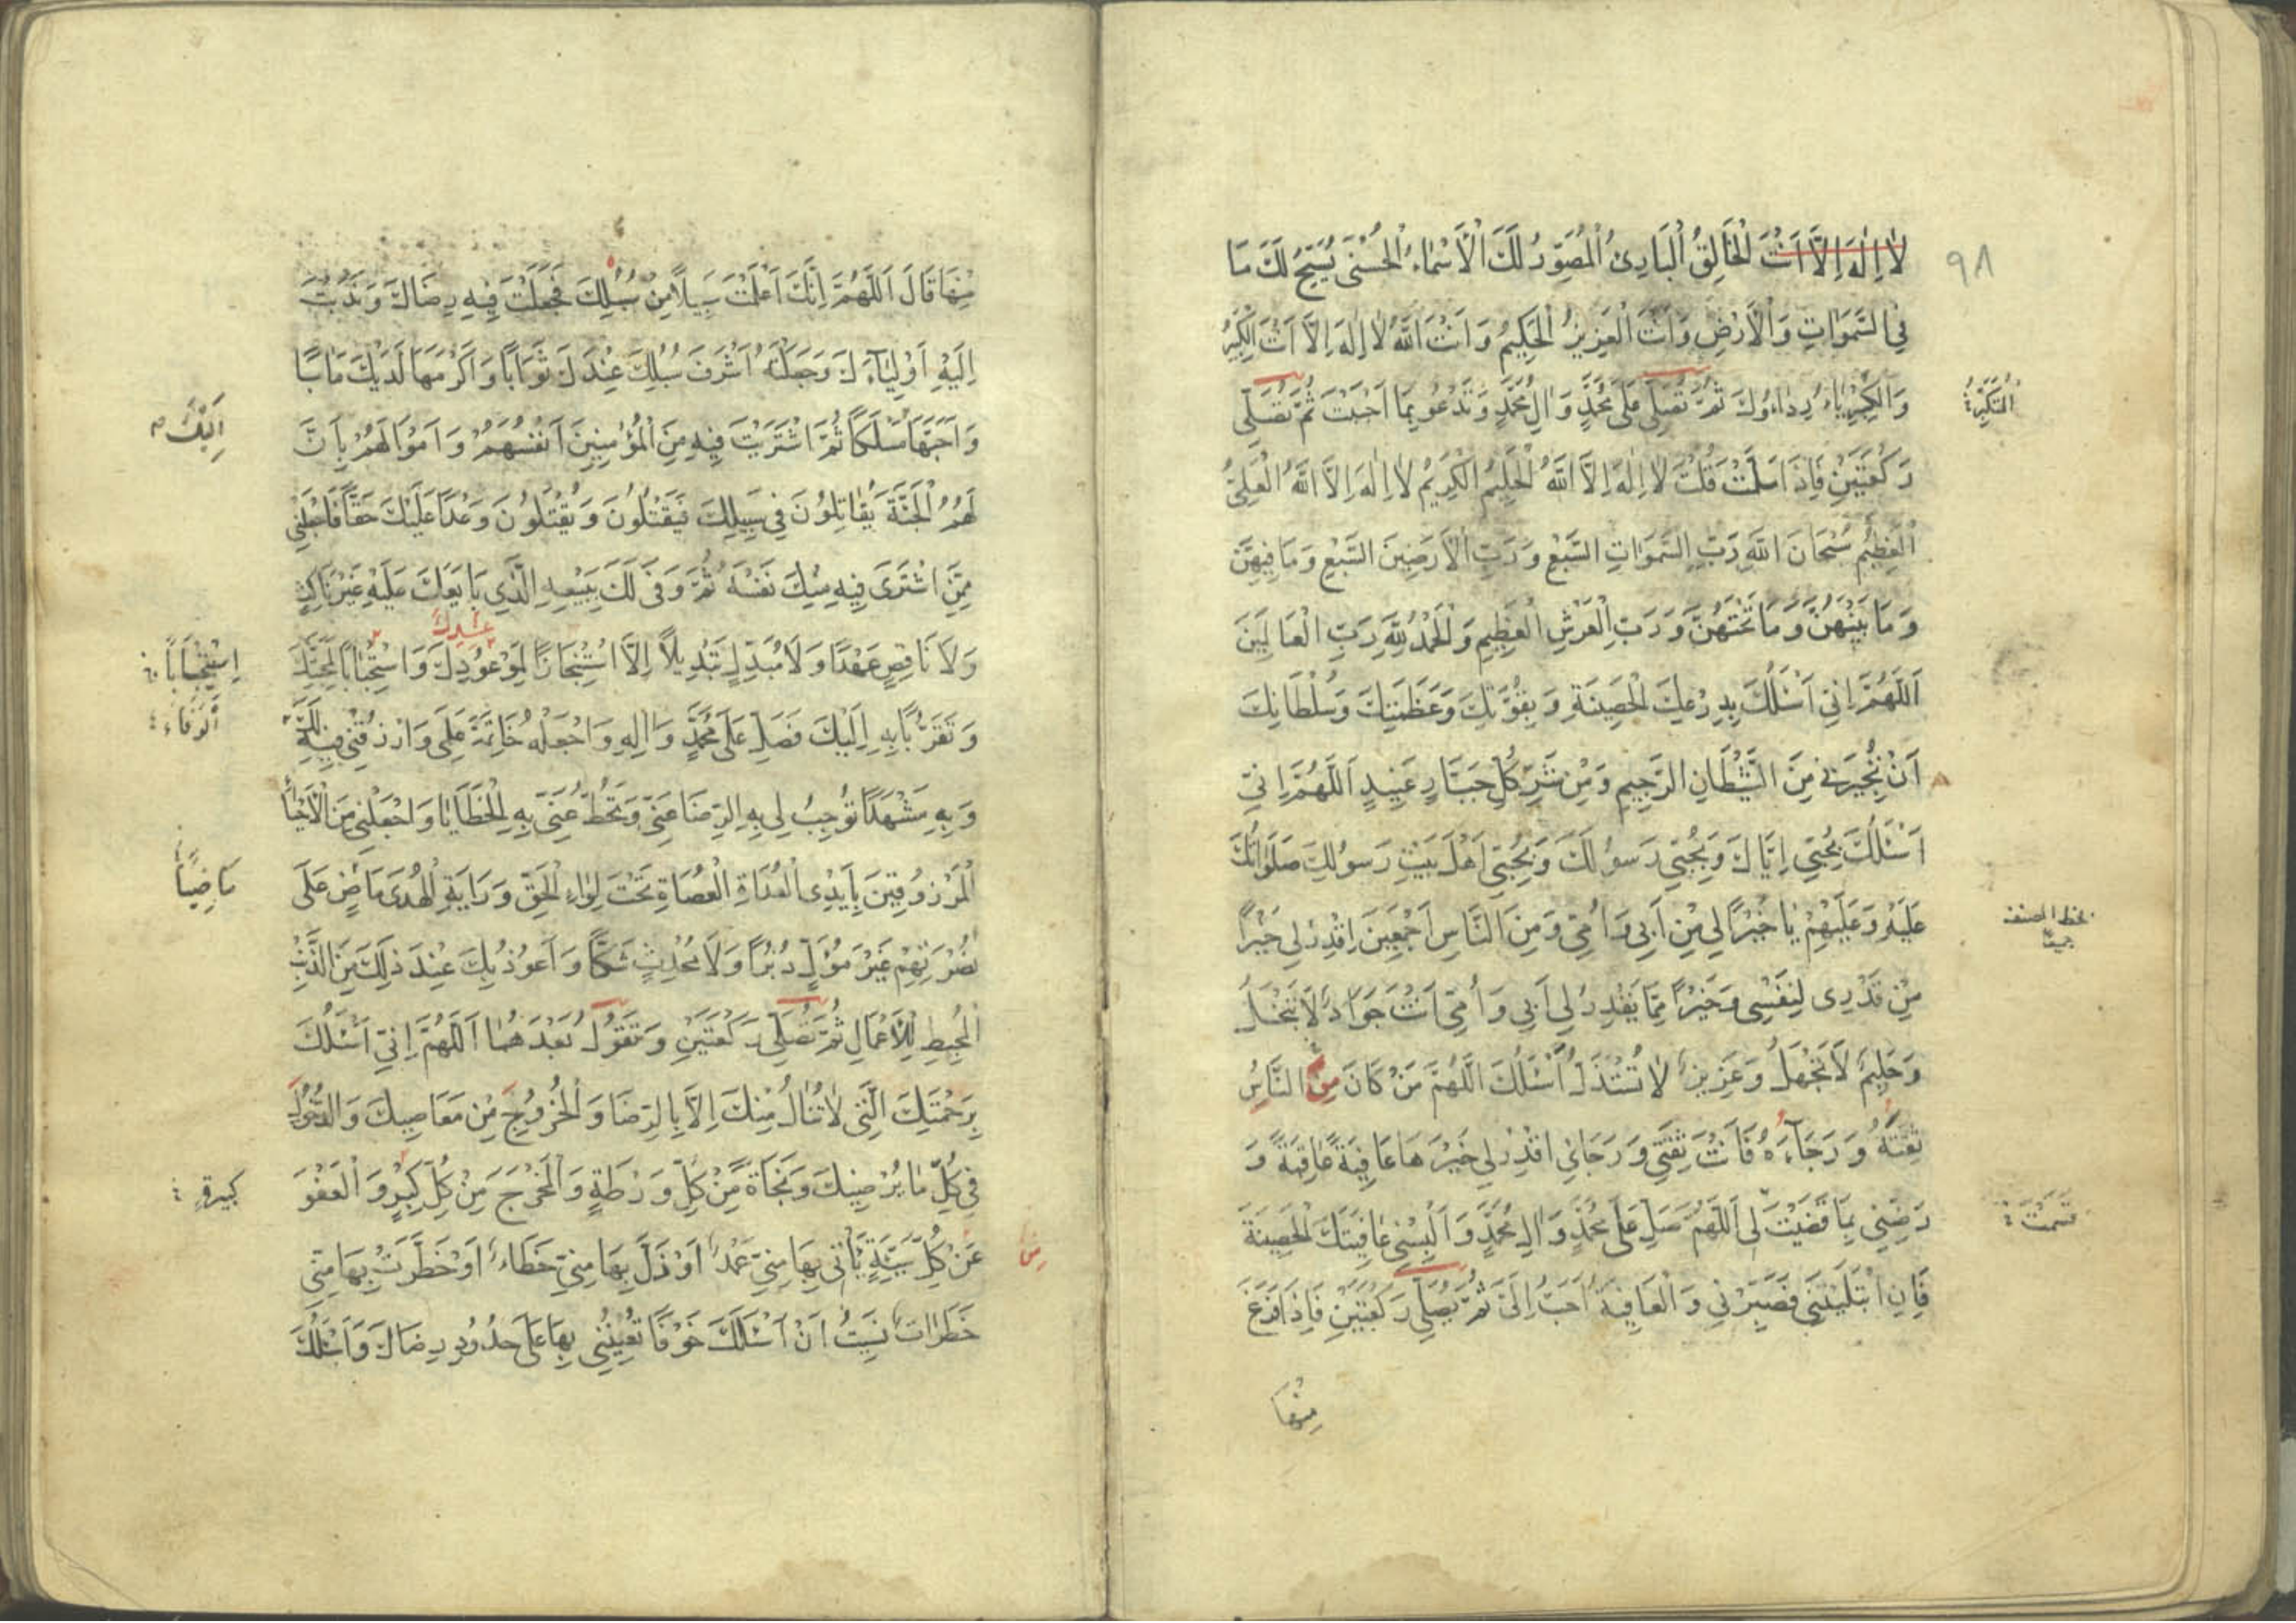 ٩٨
لَا اِلٰهَ اِلَّا اَنْتَ الْخَالِقُ الْبَارِئُ الْمُصَوِّرُ لَكَ الْاَسْمَاءُ الْحُسْنٰى يُسَبِّحُ لَكَ مَا
فِي السَّمٰوَاتِ وَالْاَرْضِ وَاَنْتَ الْعَزِيزُ الْحَكِيمُ وَاَنْتَ اللّٰهُ لَا اِلٰهَ اِلَّا اَنْتَ الْكَبِيرُ
وَالْكِبْرِيَاءُ رِدَاؤُكَ ثُمَّ تُصَلِّي عَلٰى مُحَمَّدٍ وَاٰلِ مُحَمَّدٍ وَتَدْعُو بِمَا اَحْبَبْتَ ثُمَّ تُصَلِّي
رَكْعَتَيْنِ فَاِذَا سَلَّمْتَ قُلْتَ لَا اِلٰهَ اِلَّا اللّٰهُ الْحَلِيمُ الْكَرِيمُ لَا اِلٰهَ اِلَّا اللّٰهُ الْعَلِيُّ
الْعَظِيمُ سُبْحَانَ اللّٰهِ رَبِّ السَّمٰوَاتِ السَّبْعِ وَرَبِّ الْاَرَضِينَ السَّبْعِ وَمَا فِيهِنَّ
وَمَا بَيْنَهُنَّ وَمَا تَحْتَهُنَّ وَرَبِّ الْعَرْشِ الْعَظِيمِ وَالْحَمْدُ لِلّٰهِ رَبِّ الْعَالَمِينَ
اَللّٰهُمَّ اِنِّي اَسْئَلُكَ بِدِرْعِكَ الْحَصِينَةِ وَبِقُوَّتِكَ وَعَظَمَتِكَ وَسُلْطَانِكَ
اَنْ تُجِيرَنِي مِنَ الشَّيْطَانِ الرَّجِيمِ وَمِنْ شَرِّ كُلِّ جَبَّارٍ عَنِيدٍ اَللّٰهُمَّ اِنِّي
اَسْئَلُكَ بِحُبِّي اِيَّاكَ وَبِحُبِّي رَسُولَكَ وَبِحُبِّي اَهْلَ بَيْتِ رَسُولِكَ صَلَوَاتُكَ
عَلَيْهِ وَعَلَيْهِمْ يَا خَيْرًا لِي مِنْ اَبِي وَاُمِّي وَمِنَ النَّاسِ اَجْمَعِينَ اِقْدِرْ لِي خَيْرًا
مِنْ قَدْرِي لِنَفْسِي وَخَيْرًا مِمَّا يَقْدِرُ لِي اَبِي وَاُمِّي اَنْتَ جَوَادٌ لَا تَبْخَلُ
وَحَلِيمٌ لَا تَجْهَلُ وَعَزِيزٌ لَا تُسْتَذَلُّ اَسْئَلُكَ اللّٰهُمَّ مَنْ كَانَ مِنَ النَّاسِ
ثِقَتَهُ وَرَجَاءَهُ فَاَنْتَ ثِقَتِي وَرَجَائِي اقْدِرْ لِي خَيْرَهَا عَافِيَةً عَاقِبَةً وَ
رَضِّنِي بِمَا قَضَيْتَ لِي اَللّٰهُمَّ صَلِّ عَلٰى مُحَمَّدٍ وَاٰلِ مُحَمَّدٍ وَاَلْبِسْنِي عَافِيَتَكَ الْحَصِينَةَ
فَاِنِ ابْتَلَيْتَنِي فَصَبِّرْنِي وَالْعَافِيَةُ اَحَبُّ اِلَيَّ ثُمَّ يُصَلِّي رَكْعَتَيْنِ فَاِذَا فَرَغَ
مِنْهَا
بخط المصنف
قَسَمْتَ
مِنْهَا قَالَ اَللّٰهُمَّ اِنَّكَ اَعْلَمْتَ سَبِيلًا مِنْ سُبُلِكَ فَجَعَلْتَ فِيهِ رِضَاكَ وَنَدَبْتَ
اِلَيْهِ اَوْلِيَاءَكَ وَجَعَلْتَهُ اَشْرَفَ سُبُلِكَ عِنْدَكَ ثَوَابًا وَاَكْرَمَهَا لَدَيْكَ مَاٰبًا
وَاَحَبَّهَا مَسْلَكًا ثُمَّ اشْتَرَيْتَ فِيهِ مِنَ الْمُؤْمِنِينَ اَنْفُسَهُمْ وَاَمْوَالَهُمْ بِاَنَّ
لَهُمُ الْجَنَّةَ يُقَاتِلُونَ فِي سَبِيلِكَ فَيَقْتُلُونَ وَيُقْتَلُونَ وَعْدًا عَلَيْكَ حَقًّا فَاجْعَلْنِي
مِمَّنِ اشْتَرٰى فِيهِ مِنْكَ نَفْسَهُ ثُمَّ وَفٰى لَكَ بِبَيْعِهِ الَّذِي بَايَعَكَ عَلَيْهِ غَيْرَ نَاكِثٍ
وَلَا نَاقِضٍ عَهْدًا وَلَا مُبَدِّلٍ تَبْدِيلًا اِلَّا اسْتِنْجَازًا لِمَوْعُودِكَ وَاسْتِيجَابًا لِمَحَبَّتِكَ
وَتَقَرُّبًا بِهِ اِلَيْكَ فَصَلِّ عَلٰى مُحَمَّدٍ وَاٰلِهِ وَاجْعَلْهُ خَاتِمَةَ عَمَلِي وَارْزُقْنِي فِيهِ لَكَ
وَبِهِ مَشْهَدًا تُوجِبُ لِي بِهِ الرِّضَا عَنِّي وَتَحُطُّ عَنِّي بِهِ الْخَطَايَا وَاجْعَلْنِي مِنَ الْاَحْيَاءِ
الْمَرْزُوقِينَ بِاَيْدِي الْعُدَاةِ الْعُصَاةِ تَحْتَ لِوَاءِ الْحَقِّ وَرَايَةِ الْهُدٰى مَاضٍ عَلٰى
نُصْرَتِهِمْ غَيْرَ مُوَلٍّ دُبُرًا وَلَا مُحْدِثٍ شَكًّا وَاَعُوذُ بِكَ عِنْدَ ذٰلِكَ مِنَ الذَّنْبِ
الْمُحْبِطِ لِلْاَعْمَالِ ثُمَّ تُصَلِّي رَكْعَتَيْنِ وَتَقُولُ بَعْدَهُمَا اَللّٰهُمَّ اِنِّي اَسْئَلُكَ
بِرَحْمَتِكَ الَّتِي لَا تُنَالُ مِنْكَ اِلَّا بِالرِّضَا وَالْخُرُوجِ مِنْ مَعَاصِيكَ وَالدُّخُولِ
فِي كُلِّ مَا يُرْضِيكَ وَنَجَاةً مِنْ كُلِّ وَرْطَةٍ وَالْمَخْرَجَ مِنْ كُلِّ كَبِيرٍ وَالْعَفْوَ
عَنْ كُلِّ سَيِّئَةٍ يَأْتِي بِهَا مِنِّي عَمْدٌ اَوْ زَلَّ بِهَا مِنِّي خَطَاءٌ اَوْ خَطَرَتْ بِهَا مِنِّي
خَطَرَاتٌ نَسِيتُ اَنْ اَسْئَلَكَ خَوْفًا تُعِينُنِي بِهَا عَلٰى حُدُودِ رِضَاكَ وَاَسْئَلُكَ
اِلَيْكَ
اِسْتِيجَابًا
اَلْوَفَاءَ
مَاضِيًا
كَبِيرَةٍ